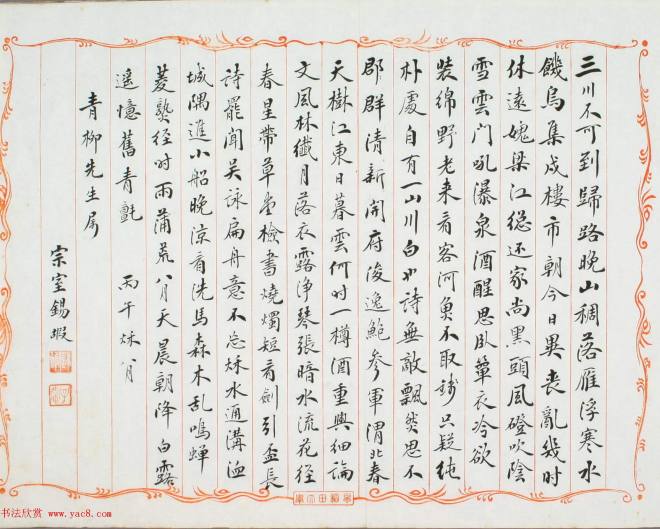 三川不可到歸路晚山稠落雁浮寒水
饑烏集戍樓市朝今日異喪亂幾時
休遠媿梁江總還家尚黑頭風磴吹陰
雪雲門吼瀑泉酒醒思臥簟衣冷欲
裝綿野老来看客河魚不取錢只疑純
朴處自有一山川白也詩無敵飄然思不
郡群清新開府俊逸鮑參軍渭北春
天樹江東日暮雲何时一樽酒重與細論
文風林纖月落衣露浄琴張暗水流花径
春星帶草堂檢書燒燭短看劍引盃長
詩罷聞吴詠扁舟意不忘秋水通溝洫
城隅進小船晚凉看洗馬森木乱鳴蝉
菱熟经时雨蒲荒八月天晨朝降白露
遥憶舊青氈 丙午秌八月
青柳先生属
宗室錫嘏
书法欣赏 www.yac8.com